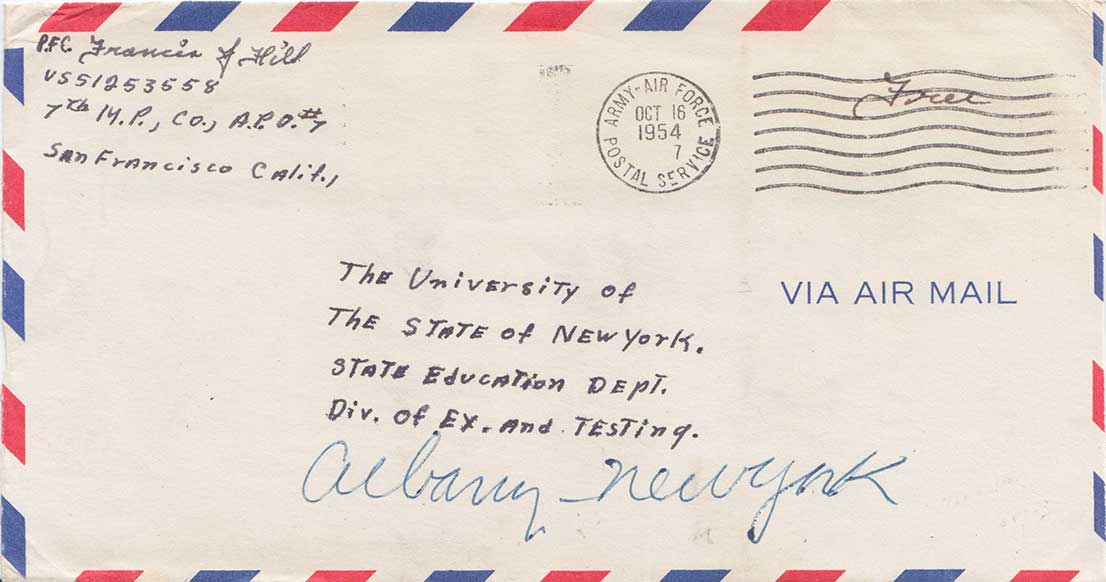 P.F.C. Francis J Hill
US51253558
7th M.P., Co., A.P.O. #7
San Francisco Calif.,
ARMY-AIR FORCE
OCT 16
1954
7
POSTAL SERVICE
Free
VIA AIR MAIL
The University of
The STATE of New York.
STATE Education DEPT.
Div. of Ex. and TESTing.
Albany New York